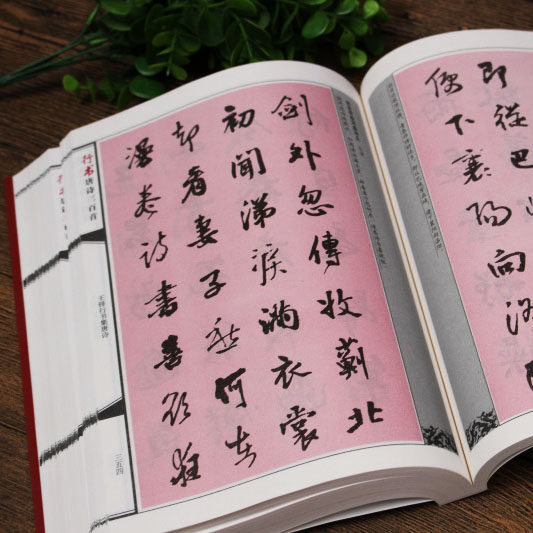 行书 唐诗三百首
王铎行书集唐诗
三五四
劍外忽傳收薊北
初聞涕淚滿衣裳
却看妻子愁何在
漫卷詩書喜欲狂
即從巴
便下襄陽向洛